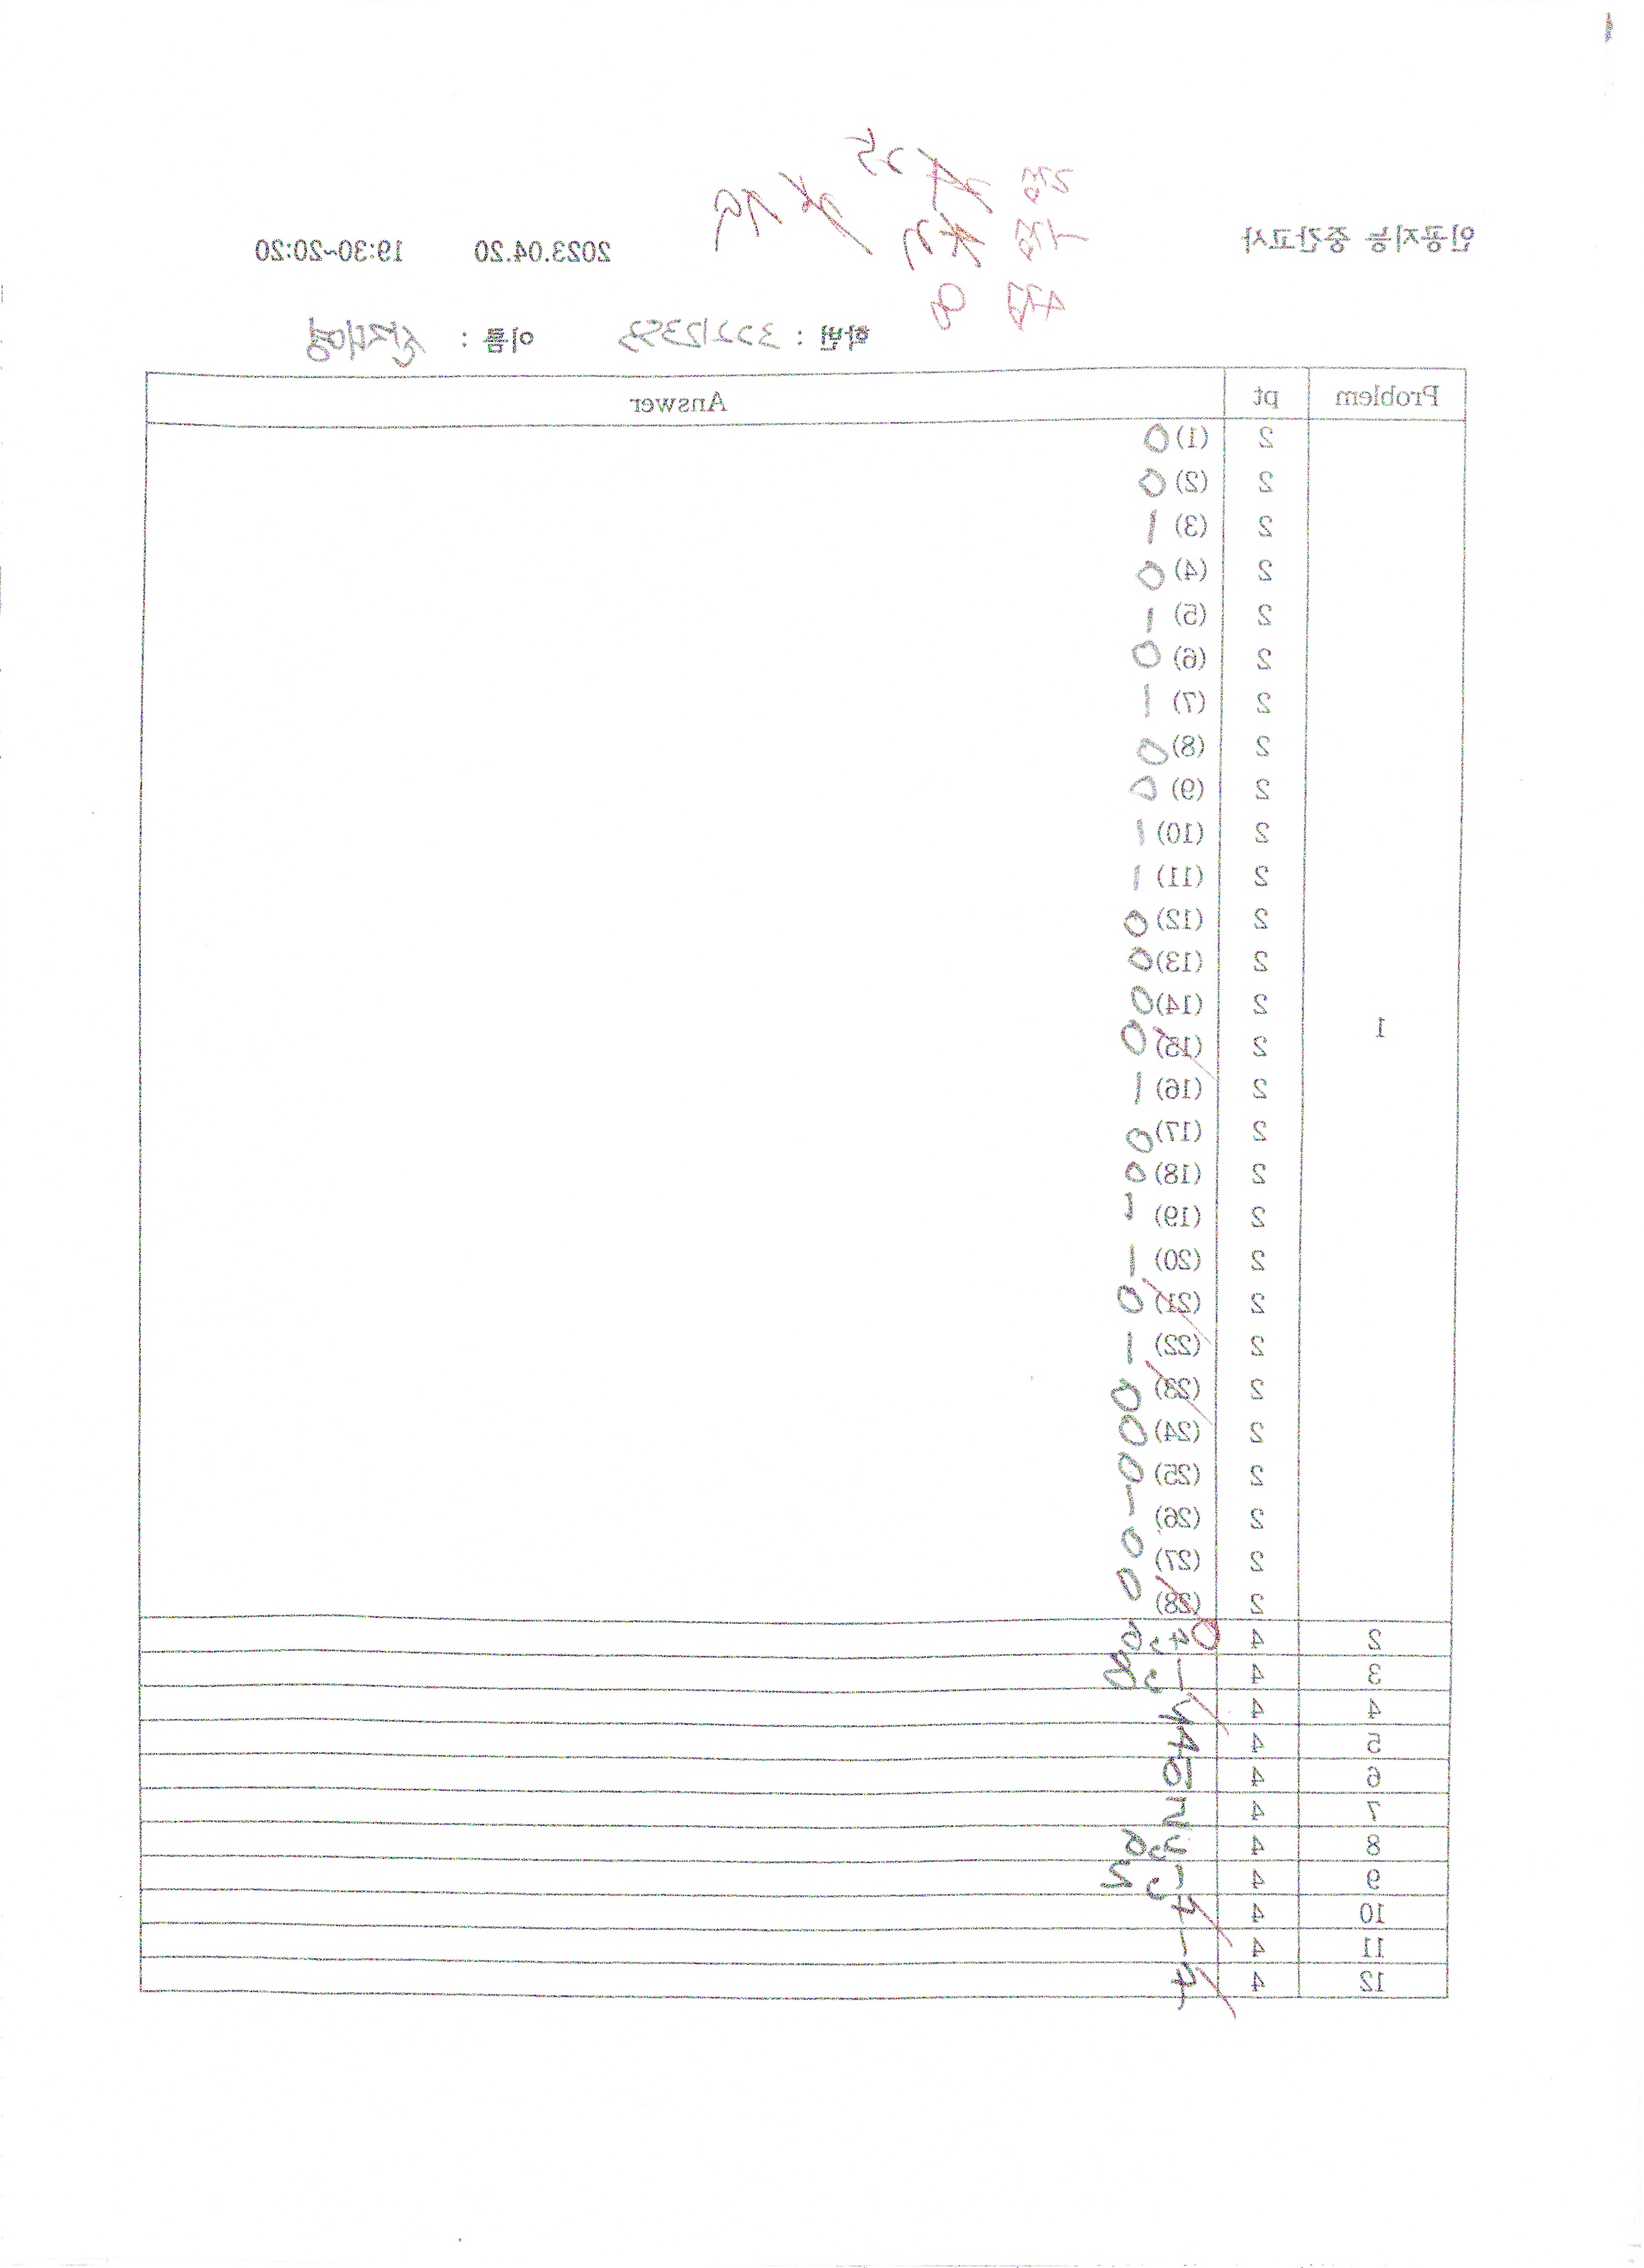 인공지능 중간고사 2023.04.20 19:30~20:20
학번 : 이름 :
Problem pt Answer
1
2 (1) 0
2 (2) 0
2 (3) 1
2 (4) 0
2 (5) 1
2 (6) 0
2 (7) 1
2 (8) 0
2 (9) 0
2 (10) 1
2 (11) 1
2 (12) 0
2 (13) 0
2 (14) 0
2 (15) 0
2 (16) 1
2 (17) 0
2 (18) 0
2 (19) 1
2 (20) 1
2 (21) 0
2 (22) 1
2 (23) 0
2 (24) 0
2 (25) 0
2 (26) 1
2 (27) 0
2 (28) 0
2 4
3 4
4 4
5 4 4
6 4
7 4
8 4
9 4
10 4 4
11 4 1
12 4 4